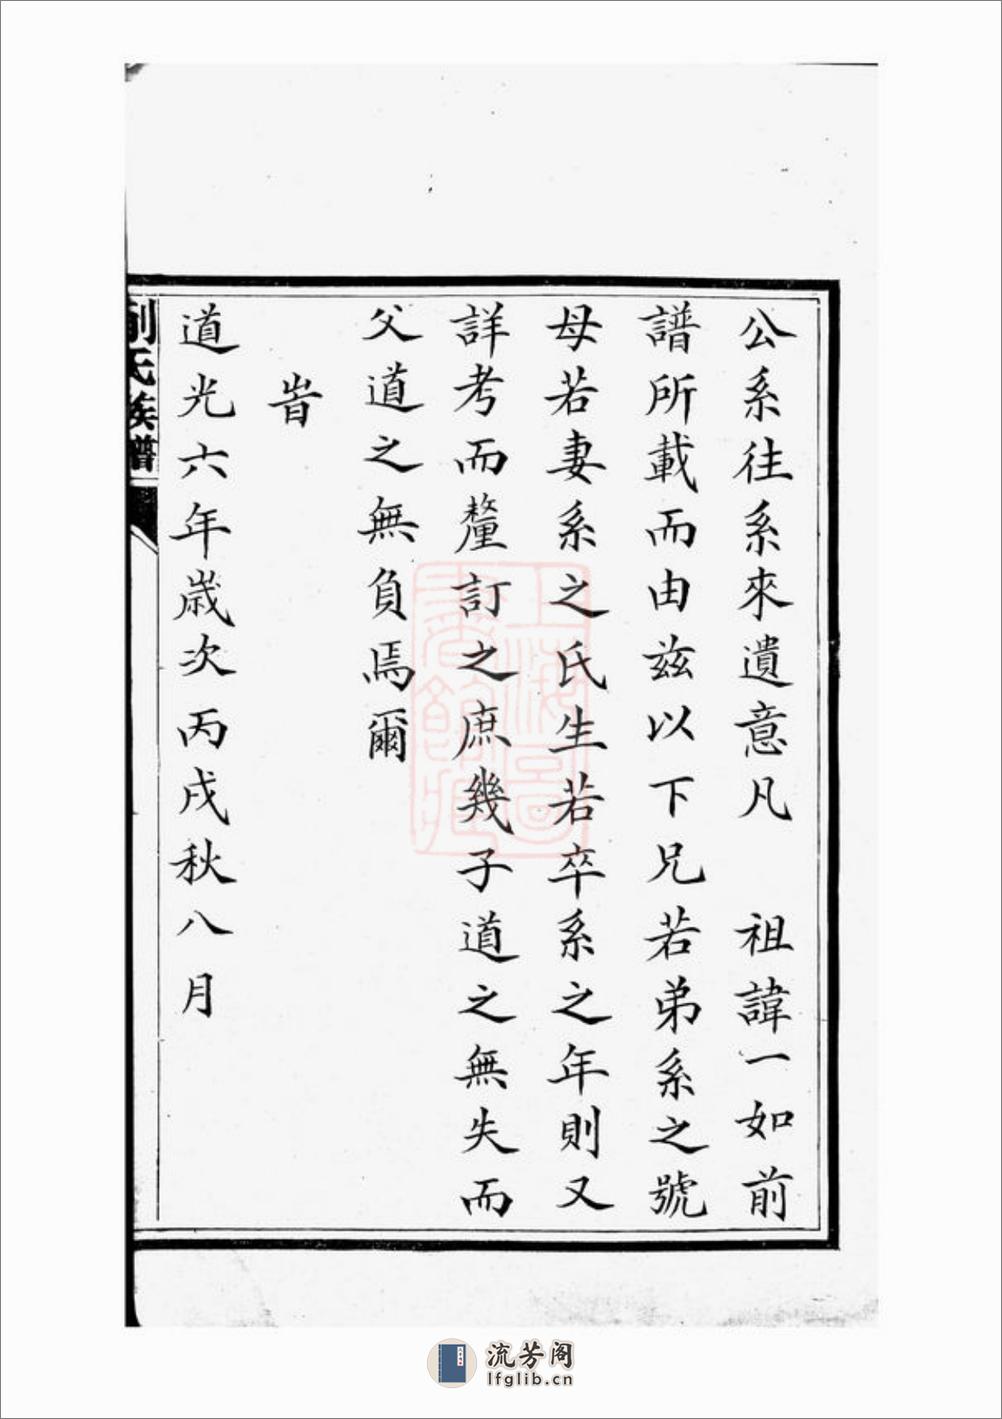 公系往系來遺意凡　祖諱一如前
譜所載而由兹以下兄若弟系之號
母若妻系之氏生若卒系之年則又
詳考而釐訂之庶幾子道之無失而
父道之無負焉爾
旹
道光六年歲次丙戌秋八月
氏族譜
上海圖
書館藏
流芳阁
lfglib.cn